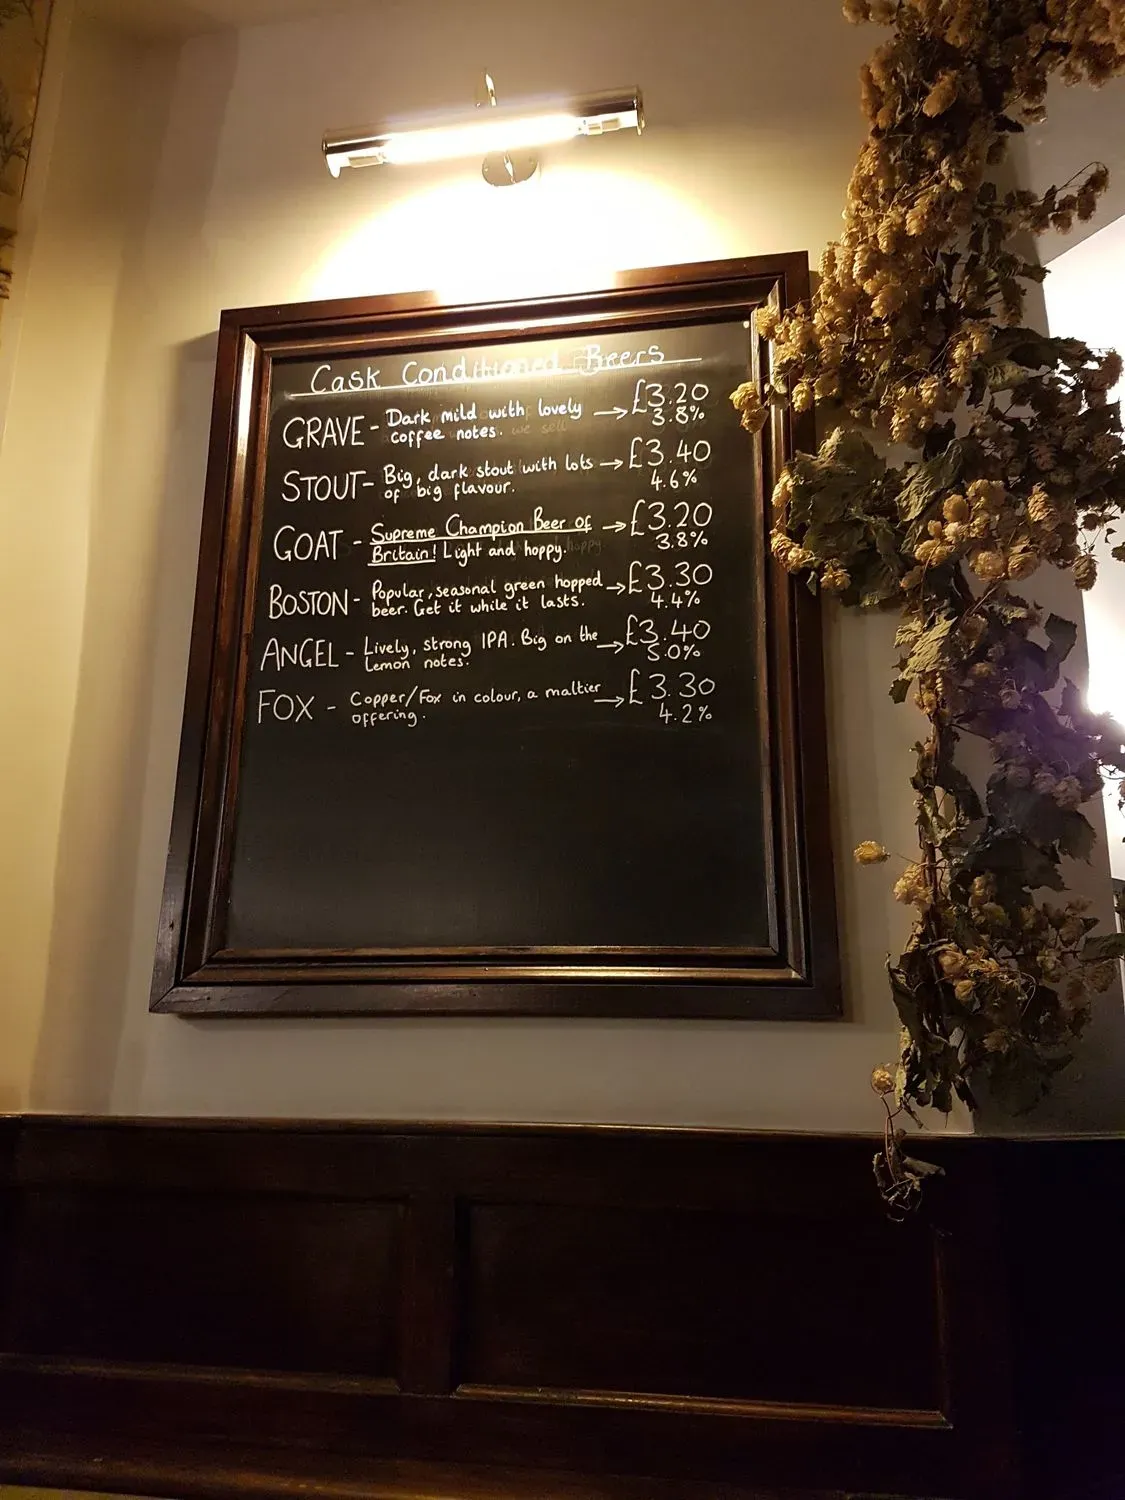 Cask Conditioned Beers
GRAVE - Dark mild with lovely → £3.20
coffee notes. we sell 3.8%
STOUT - Big, dark stout with lots → £3.40
of big flavour. 4.6%
GOAT - Supreme Champion Beer of → £3.20
Britain! Light and hoppy. hoppy 3.8%
BOSTON - Popular, seasonal green hopped → £3.30
beer. Get it while it lasts. 4.4%
ANGEL - Lively, strong IPA. Big on the → £3.40
Lemon notes. 5.0%
FOX - Copper/Fox in colour, a maltier → £3.30
offering. 4.2%